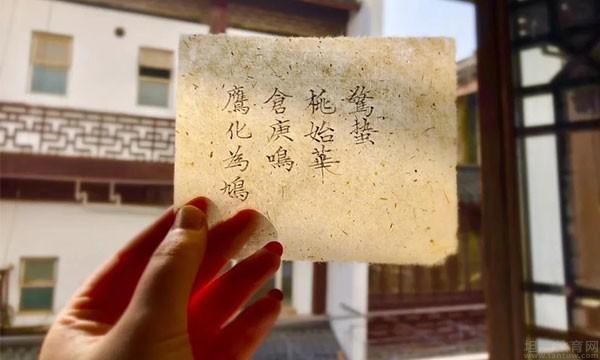 驚蟄
桃始華
倉庚鳴
鷹化為鳩
www.tantuw.com